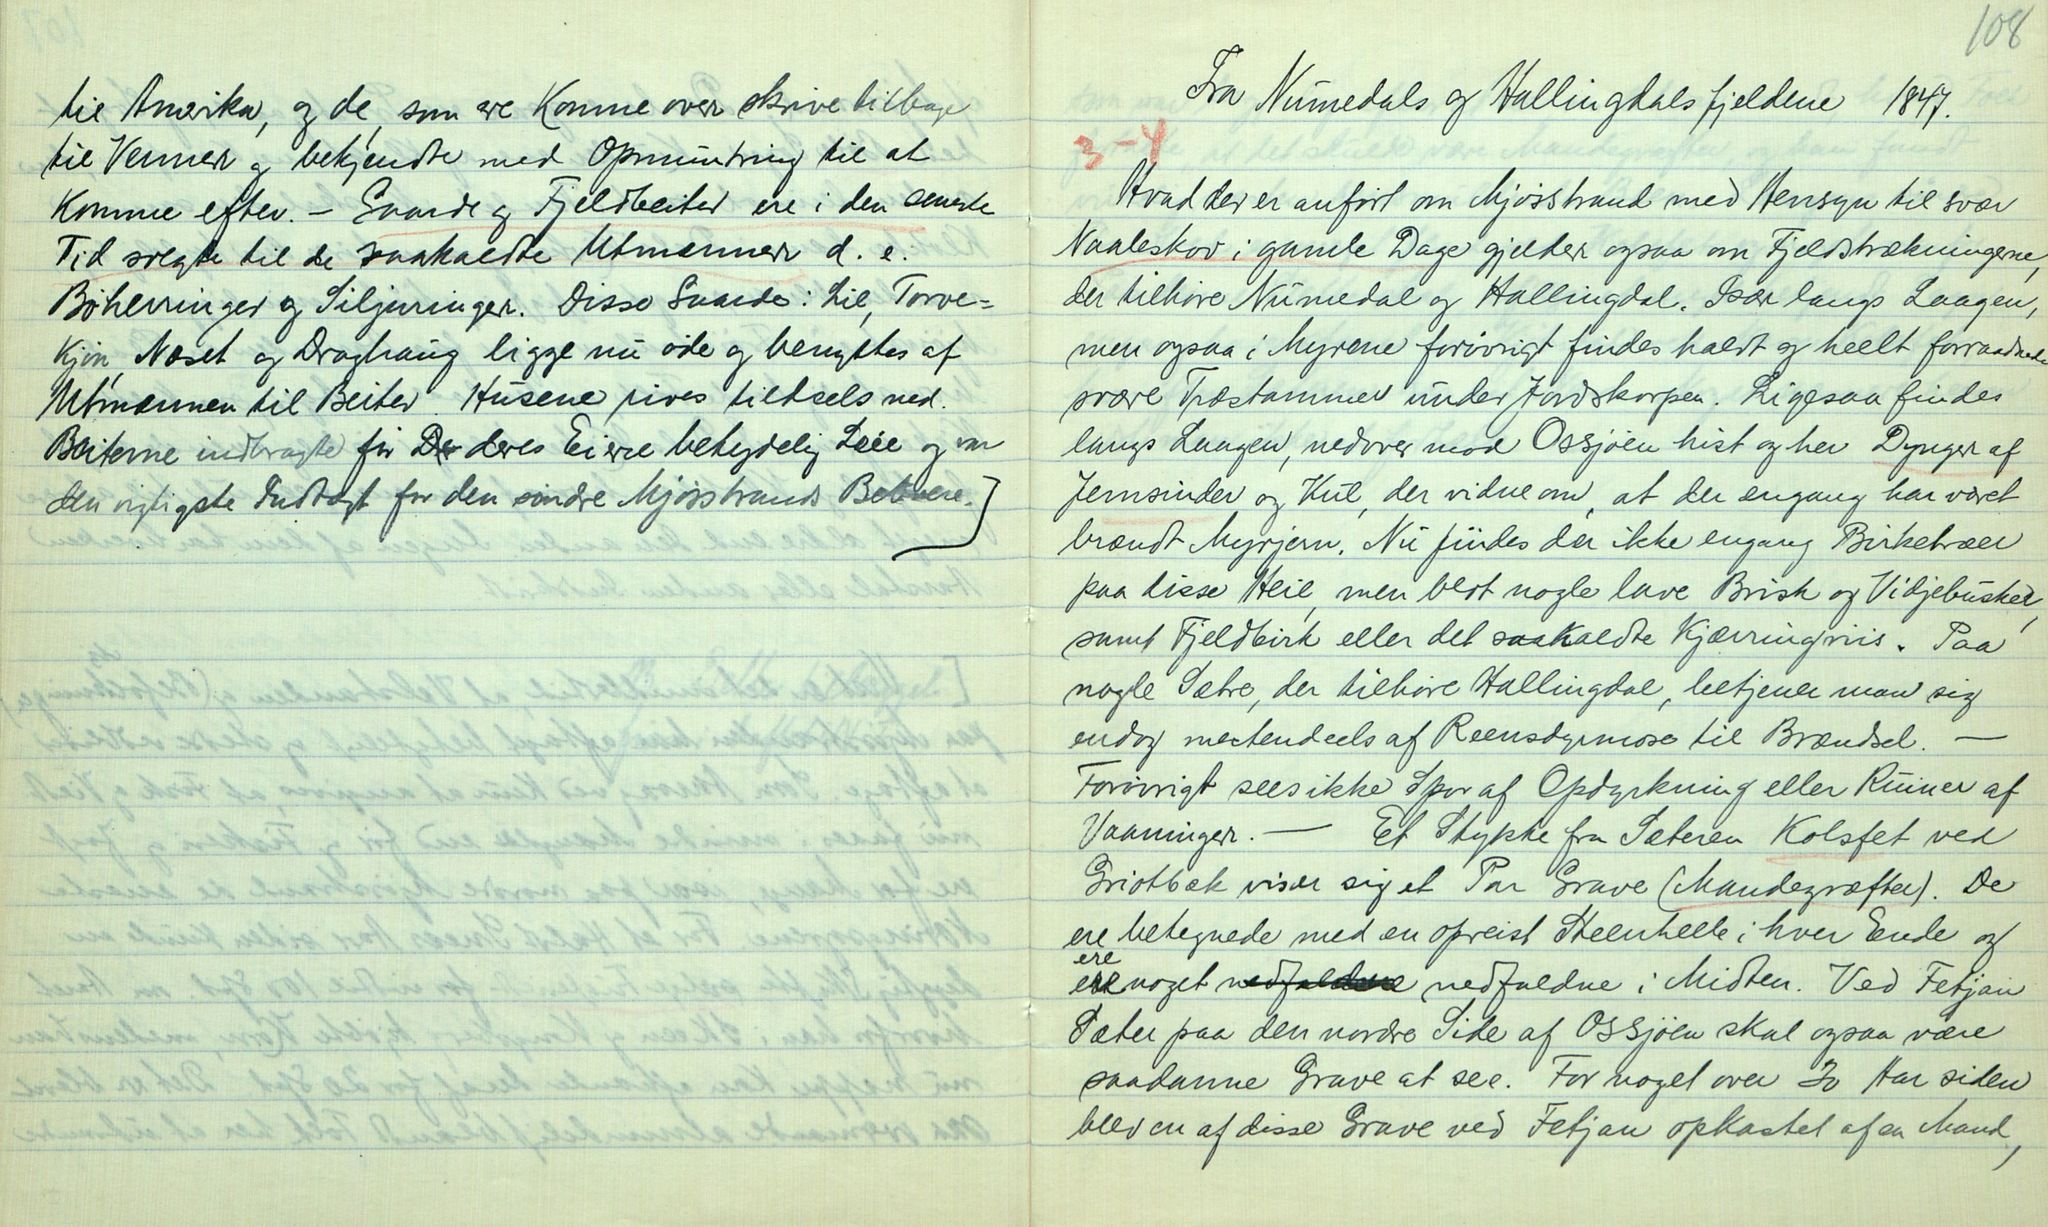 til Amerika, og de, som ere komne over skrive tilbage
til Venner og bekjendte med Opmuntring til at
komme efter. – Gaarde og Fjeldbeiter ere i den seneste
Tid solgte til de saakaldte Utmænner d. e.
Böherringer og Siljuringer. Disse Gaarde: Lil, Torve=
kjön, Næset og Draghaug ligge nu öde og benyttes af
Utmænnen til Beiter. Husene rives tildeels ned.
Beiterne indbragte för deres Eiere betydelig Leie og var
den vigtigste Indtægt for den söndre Mjösstrands Beboere.]
108
Fra Numedals og Hallingdalsfjeldene 1847.
3–4
Hvad der er anfört om Mjösstrand med Hensyn til svær
Naaleskov i gamle Dage gjelder ogsaa om Fjeldstrækningerne,
der tilhöre Numedal og Hallingdal. Især langs Laagen,
men ogsaa i Myrene forövrigt findes haldt og heelt forraadnede
svære Træstammer under Jordskorpen. Ligesaa findes
langs Laagen, nedover mod Ossjöen hist og her Dynger af
Jernsinder og Kul, der vidne om, at der engang har været
brændt Myrjern. Nu findes der ikke engang Birketræer
paa disse Heie, men blot nogle lave Brisk og Vidjebusker,
samt Fjeldbirk eller det saakaldte Kjærringriis. Paa
nogle Sætre, der tilhöre Hallingdal, betjener man sig
endog mestendeels af Reensdyrmose til Brændsel. —
Forövrigt sees ikke Spor af Opdyrkning eller Ruiner af
Vaaninger. — Et Stykke fra Sæteren Kolsfet ved
Griotbæk viser sig et Par Grave (Mandegræfter). De
ere betegnede med en opreist Steenhelle i hver Ende og
ere
ere noget nedfaldne nedfaldne i Midten. Ved Fetjan
Sæter paa den nordre Side af Ossjöen skal ogsaa være
saadanne Grave at see. For noget over 30 Aar siden
blev en af disse Grave ved Fetjan opkastet af en Mand,